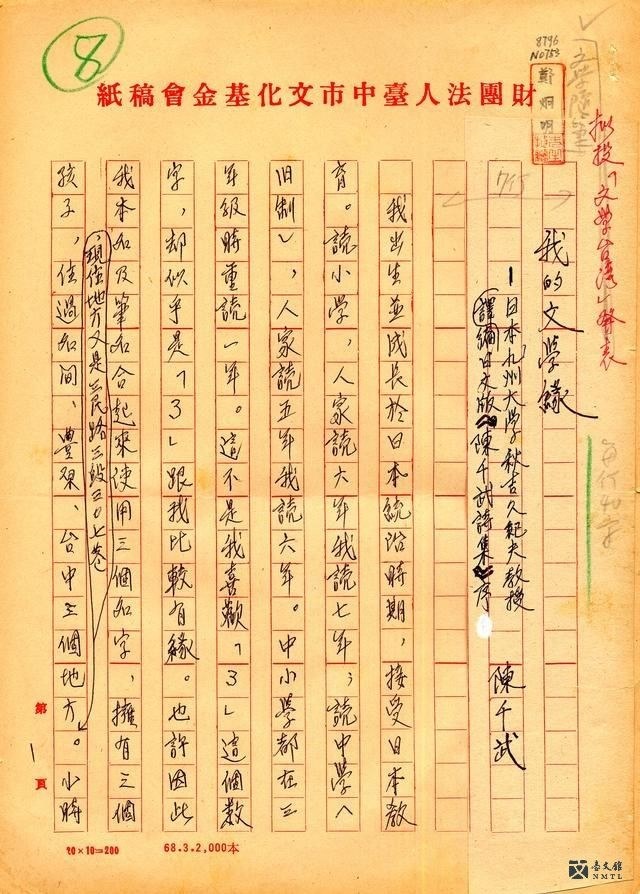 8
8796
N0753
鄭烱明
擬投「文學台灣」發表
每行40字
財團法人臺中市文化基金會稿紙
我的文學緣
－日本九州大學秋吉久紀夫教授
譯編日文版《陳千武詩集》序
陳千武
我出生並成長於日本統治時期，接受日本教
育。讀小學，人家讀六年我讀七年，讀中學（
旧制），人家讀五年我讀六年。中小學都在三
年級時重讀一年。這不是我喜歡「3」這個數
字，却似乎是「3」跟我比較有緣。也許因此
我本名及筆名合起來使用三個名字，擁有三個
孩子，住過名間、豐原、台中三個地方。小時
，現住地方又是三民路三段三0七巷
第1頁
20×10=200
68.3.2,000本
臺文館
NMTL